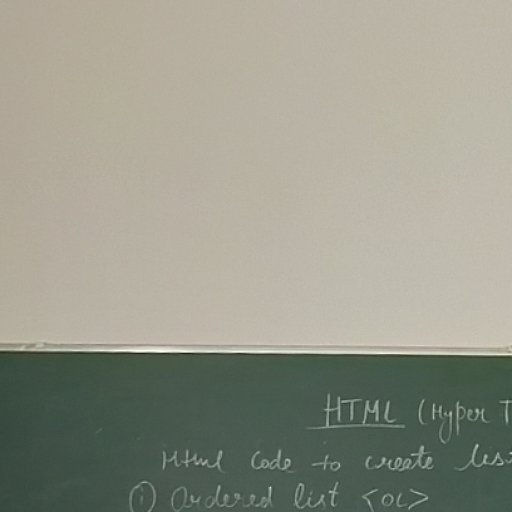 HTML (Hyper T
Html Code to create lis
① Ordered list <OL>